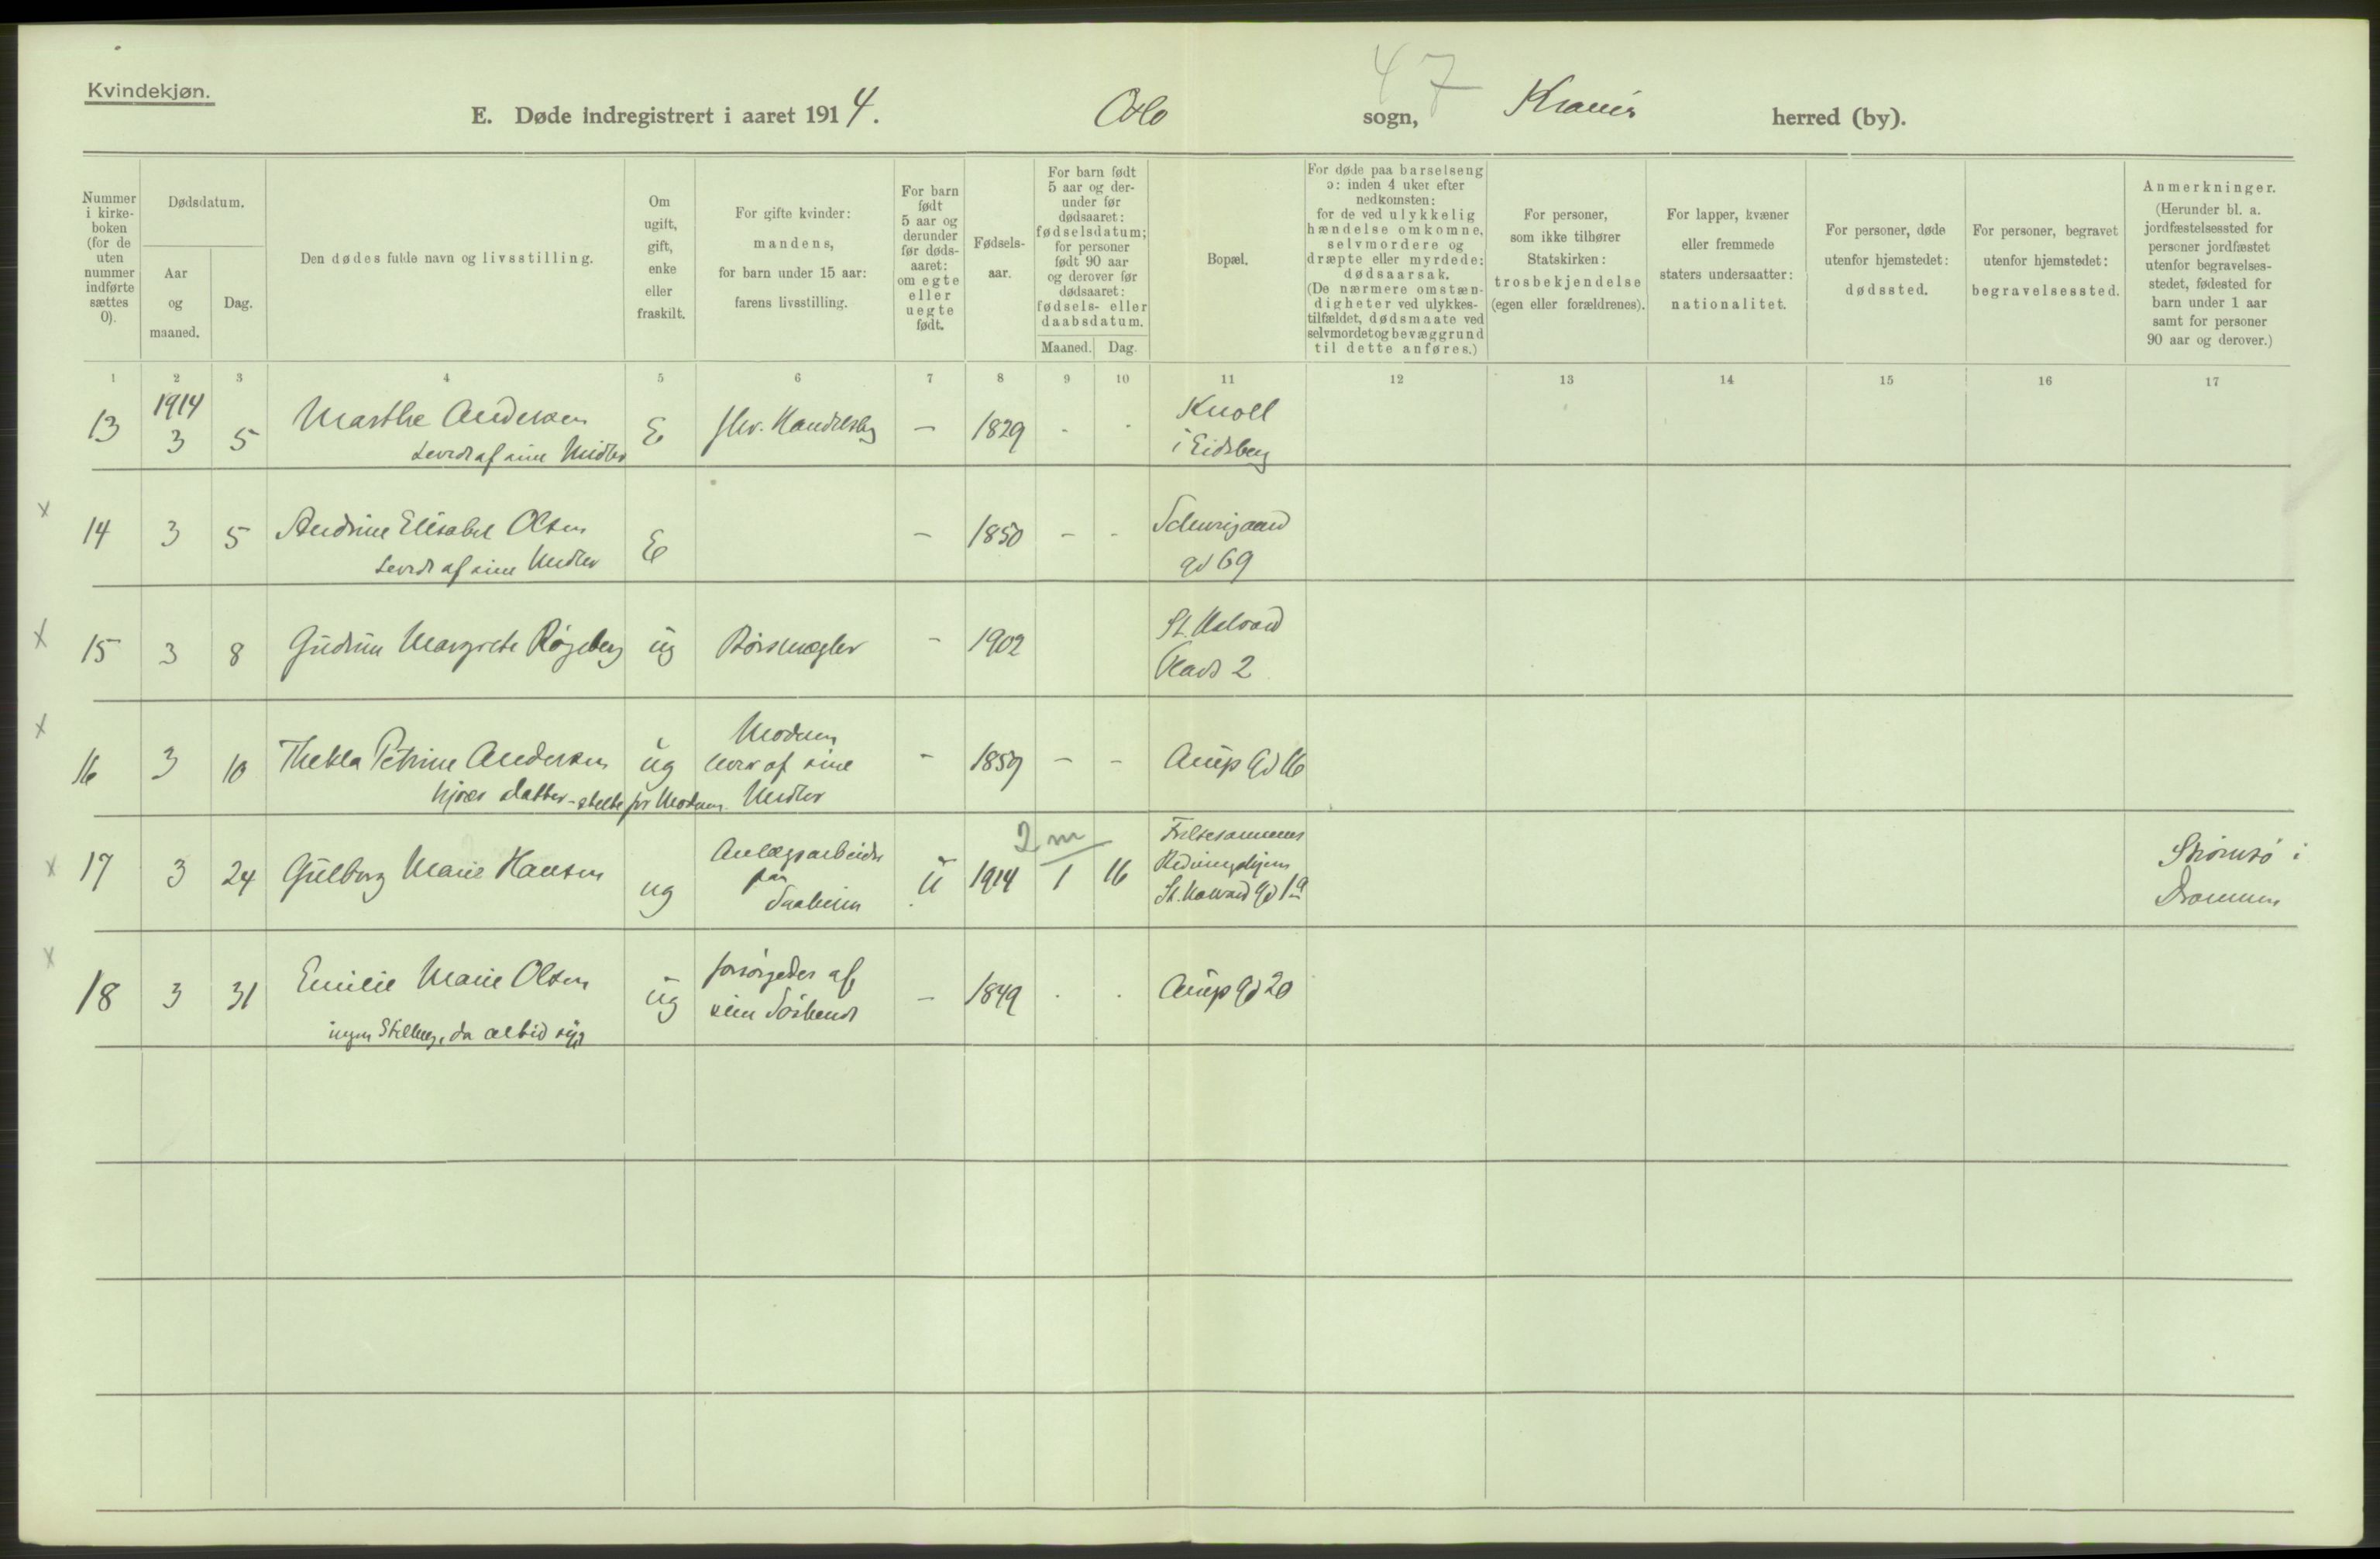 47
Kvindekjøn.
E. Døde indregistrert i aaret 1914. Oslo sogn, Krania herred (by).
Nummer i kirke- boken (for de uten nummer indførte sættes 0).
Dødsdatum.
Aar og maaned.
Dag.
Den dødes fulde navn og livsstilling.
Om ugift, gift, enke eller fraskilt.
For gifte kvinder: mandens, for barn under 15 aar: farens livsstilling.
For barn født 5 aar og derunder før døds- aaret: om egte eller uegte født.
Fødsels- aar.
For barn født 5 aar og der- under før dødsaaret: fødselsdatum; for personer født 90 aar og derover før dødsaaret: fødsels- eller daabsdatum.
Maaned.
Dag.
Bopæl.
For døde paa barselseng ɔ: inden 4 uker efter nedkomsten: for de ved ulykkelig hændelse omkomne, selvmordere og dræpte eller myrdede: dødsaarsak. (De nærmere omstæn- digheter ved ulykkes- tilfældet, dødsmaate ved selvmordet og bevæggrund til dette anføres.)
For personer, som ikke tilhører Statskirken: trosbekjendelse (egen eller forældrenes).
For lapper, kvæner eller fremmede staters undersaatter: nationalitet.
For personer, døde utenfor hjemstedet: dødssted.
For personer, begravet utenfor hjemstedet: begravelsessted.
Anmerkninger. (Herunder bl. a. jordfæstelsessted for personer jordfæstet utenfor begravelses- stedet, fødested for barn under 1 aar samt for personer 90 aar og derover.)
1 2 3 4 5 6 7 8 9 10 11 12 13 14 15 16 17
1914
13 3 5 Marthe Andersen E – 1829 - -
Levede af sine Midler
i Eidsberg
x
14 3 5 Andrine Elisabet Olsen E – 1850 – - Schweigaard
Levede af sine Midler
gd 69
x
15 3 8 Gudrun Margrete Røgeberg ug Børsmægler – 1902 St. Halvard
Plads 2
x
16 3 10 Thekla Petrine Andersen ug Modren – 1859 – – Arups Gd 16
lever af sine
hjvær datter - stelte for Modren
Midler
x
17 3 24 Gulborg Marie Hansen ug Anlægsarbeider u 1914 1 16 Frelsesarmeens
2 m
paa
Saaheim
Redningshjem
St. Halvard Gd 1a
Strømsø i
Drammen
x
18 3 31 Emilie Marie Olsen ug forsørgedes af – 1849 . . Arups Gd 20
sine Søskende
ingen Stilling, da altid syg